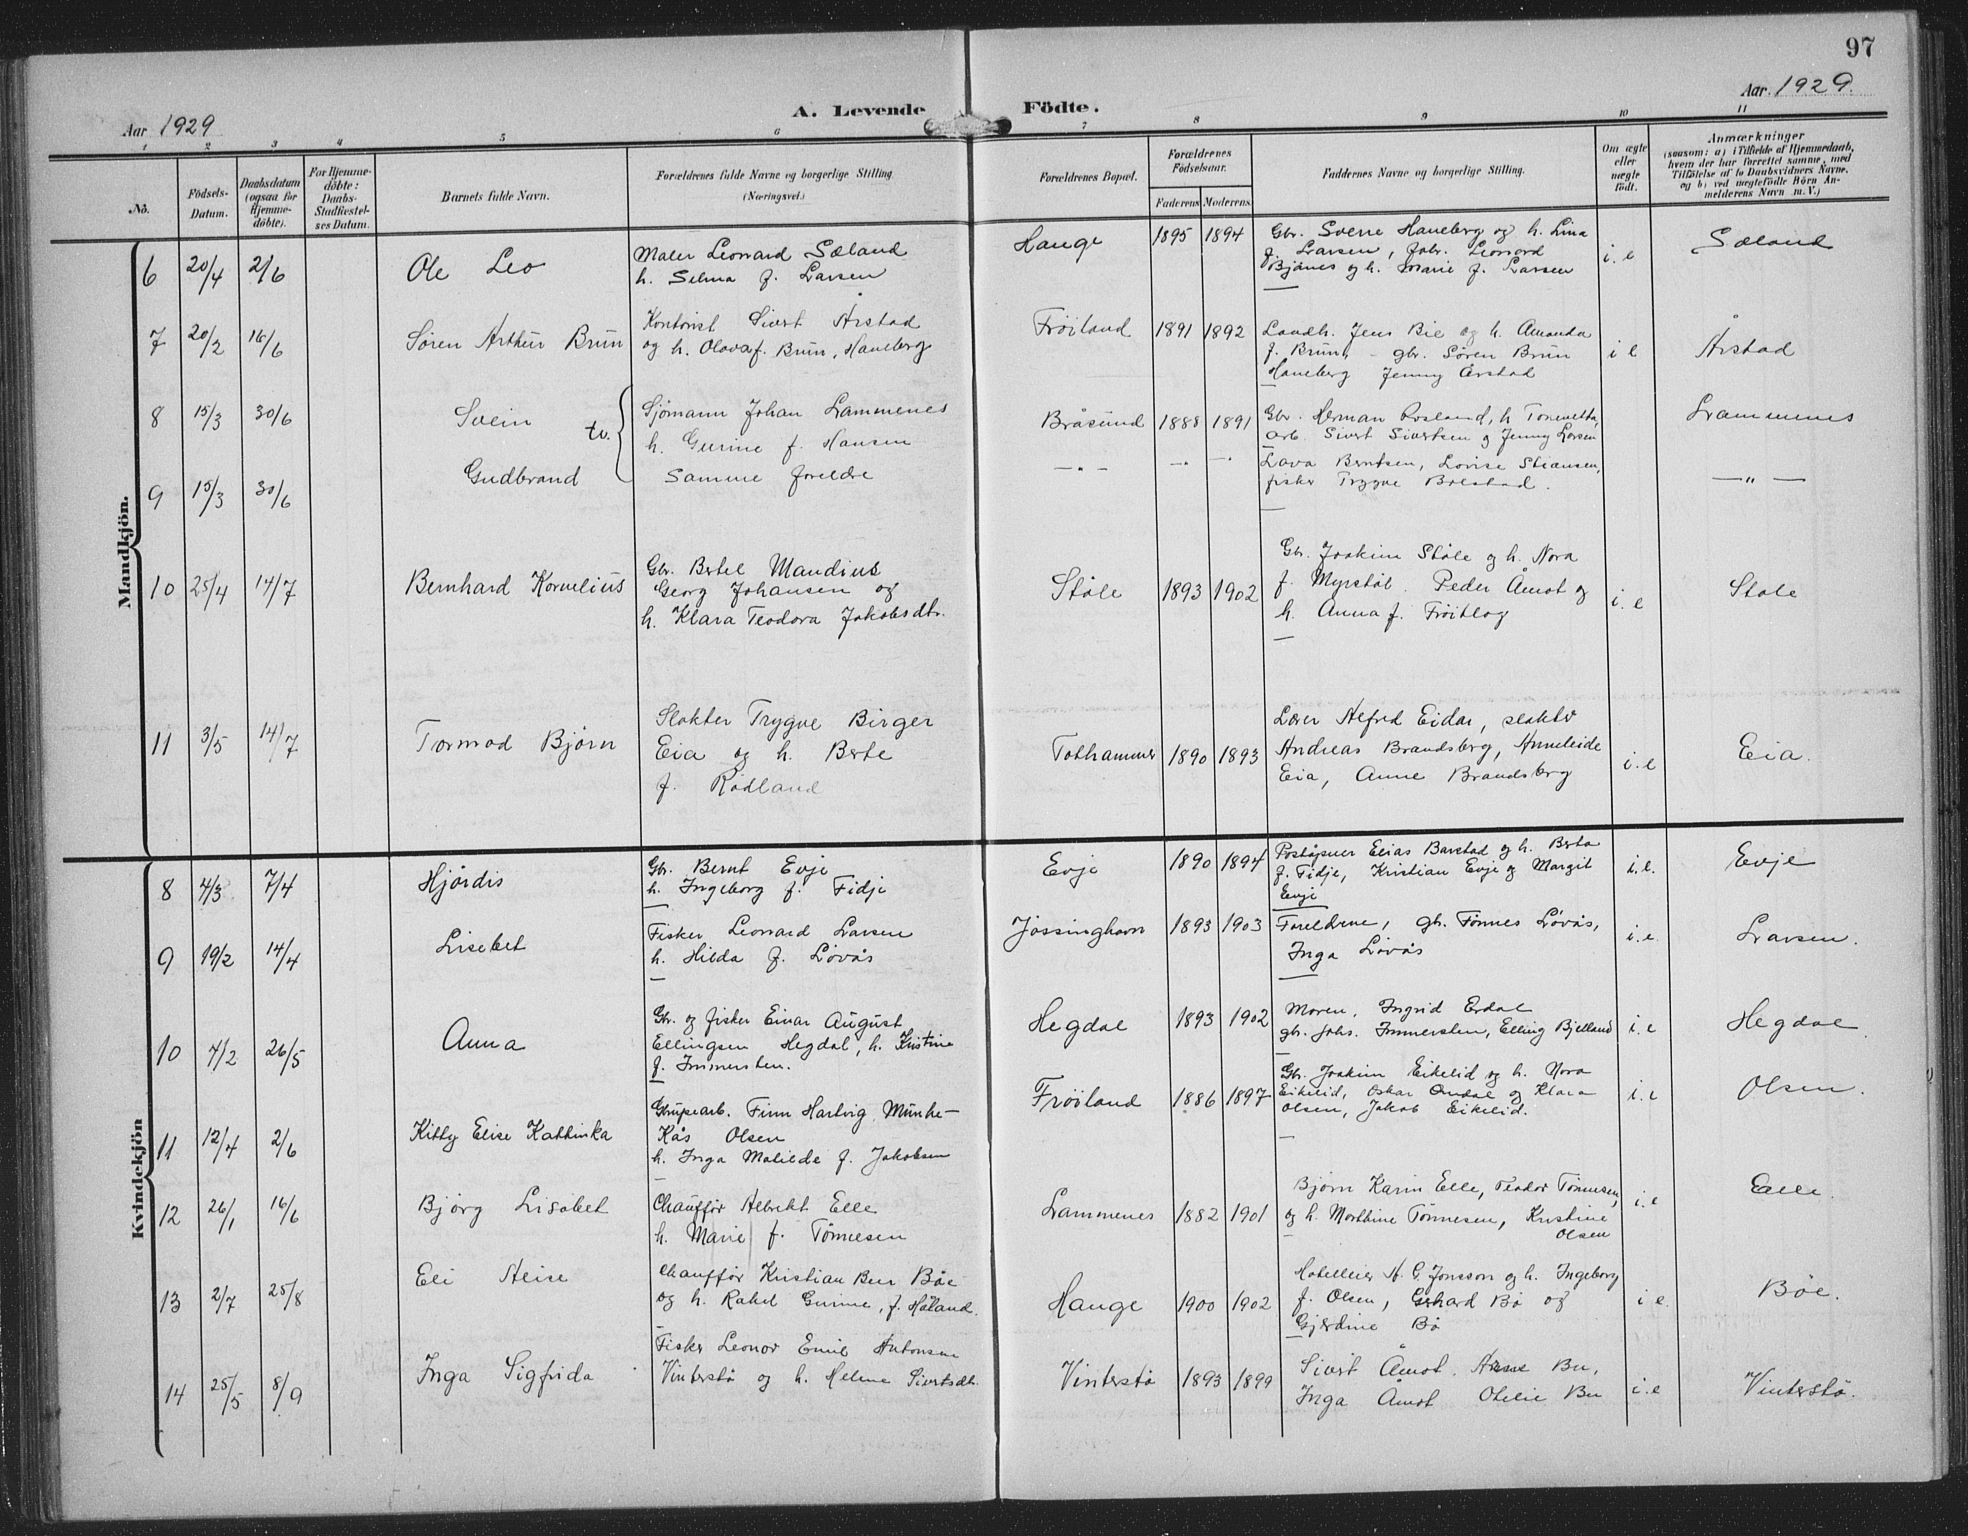 97
Aar 1929
A. Levende Födte.
Aar 1929.
1 2 3 4 5 6 7 8 9 10 11
No.
Födsels-Datum.
Daabsdatum (ogsaa for Hjemmedöbte).
For Hjemmedöbte: Daabs-Stadfæstelses Datum.
Barnets fulde Navn.
Forældrenes fulde Navne og borgerlige Stilling (Næringsvei.)
Forældrenes Bopæl.
Forældrenes Födselsaar.
Faderens Moderens
Faddernes Navne og borgerlige Stilling.
Om ægte eller uægte födt.
Anmærkninger (saasom: a) i Tilfælde af Hjemmedaab, hvem der har forrettet samme, med Tilföielse af to Daabsvidners Navne, og b) ved uægtefödte Börn Anmelderens Navn m. V.)
Mandkjön.
6 20/4 2/6 Ole Leo
Maler Leonard Sæland
h. Selma f. Larsen
Hauge 1895 1894
Gbr. Sverre Haneberg og h. Lina
f. Larsen, fabr. Leonard
Bjånes og h. Marie f. Larsen
i. e Sæland
7 20/2 16/6 Søren Arthur Brun
Kontorist Sivert Årstad
og h. Olava f. Brun, Haneberg
Frøiland 1891 1892
Landh. Jens Bie og h. Amanda
f. Brun, - gbr. Søren Brun
Haneberg Jenny Årstad
i e Årstad
8 15/3 30/6 Svein tv.
Sjømann Johan Lammenes
h. Gurine f. Hansen
Bråsund 1888 1891
Gbr. Herman Rosland, h Tonevetta,
arb. Sivert Sivertsen og Jenny Larsen
Lammenes
9 15/3 30/6 Gudbrand
Samme foreldre
— " — — " —
Lava Berntsen, Lovise Stiansen,
fisker Trygve Bolstad.
— " —
10 25/4 14/7 Bernhard Kornelius
Gbr. Bertel Mandius
Georg Johansen og
h. Klara Teodora Jakobsdtr.
Ståle 1893 1902
Gbr. Joakim Ståle og h. Nora
f. Myrstøl. Peder Åmot og
h. Anna f. Frøitlog
i. e Stale
11 3/5 14/7 Tormod Bjørn
Slakter Trygve Birger
Eia og h. Berte
f. Rødland
Tothammer 1890 1893
Lærer Alfred Eidar, slakter
Andreas Brandsberg, Anneleide
Eia, Anne Brandsberg
i. e Eia.
Kvindekjön
8 4/3 7/4 Hjördis
Gbr. Bernt Evje
h. Ingeborg f. Fidje
Evje 1890 1894
Poståpner Elias Barstad og h. Berta
f. Fidje, Kristian Evje og Margit
Evje
i. e. Evje
9 19/2 14/4 Lisebet
Fisker Leonard Larsen
h. Hilda f. Løvås
Jøssinghavn 1893 1903
Foreldrene, gbr. Tønnes Løvås,
Inga Løvås
i. e. Larsen.
10 7/2 26/5 Anna
Gbr. og fisker Einar August
Ellingsen Hegdal, h. Kristine
f. Immersten.
Hegdal 1893 1902
Moren, Ingrid Erdal
gbr. Johs. Immersten, Elling Bjelland
i. e Hegdal.
11 12/4 2/6 Kitty Elise Kathinka
Grupearb. Finn Hartvig Munke-
Kås Olsen
h. Inga Matilde f. Jakobsen
Frøiland 1886 1897
Gbr. Joakim Eikelid og h. Nora
Eikelid, Oskar Omdal og Klara
Olsen, Jakob Eikelid.
i. e Olsen.
12 26/1 16/6 Bjørg Lisabet
Chauffør Albrekt Elle
h. Marie f. Tønnesen
Lammenes 1882 1901
Bjørn Karin Elle, Teodor Tønnesen,
og h. Morthine Tønnesen, Kristine
Olsen
i. e Elle.
13 2/7 25/8 Eli Alise
Chauffør Kristian Ben Böe
og h. Rakel Gurine, f. Håland.
Hauge 1900 1902
Hotelleier A. G. Jonsson og h. Ingeborg
f. Olsen, Gerhard Bø og
Gjerdine Bø
i e. Böe.
14 25/5 8/9 Inga Sigfrida
Fisker Leonor Emil Antonsen
Vinterstø og h. Helene Sivertsdtr.
Vinterstø 1893 1899
Sivert Åmot. Arne Bu,
Inga Åmot Otelie Bu
i. e Vinterstø.